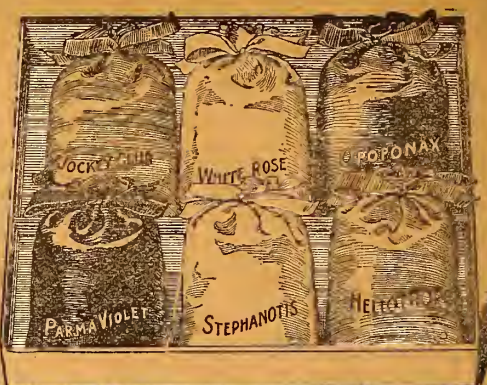 JOCKEY CLUB
WHITE ROSE
OPOPONAX
PARMA VIOLET
STEPHANOTIS